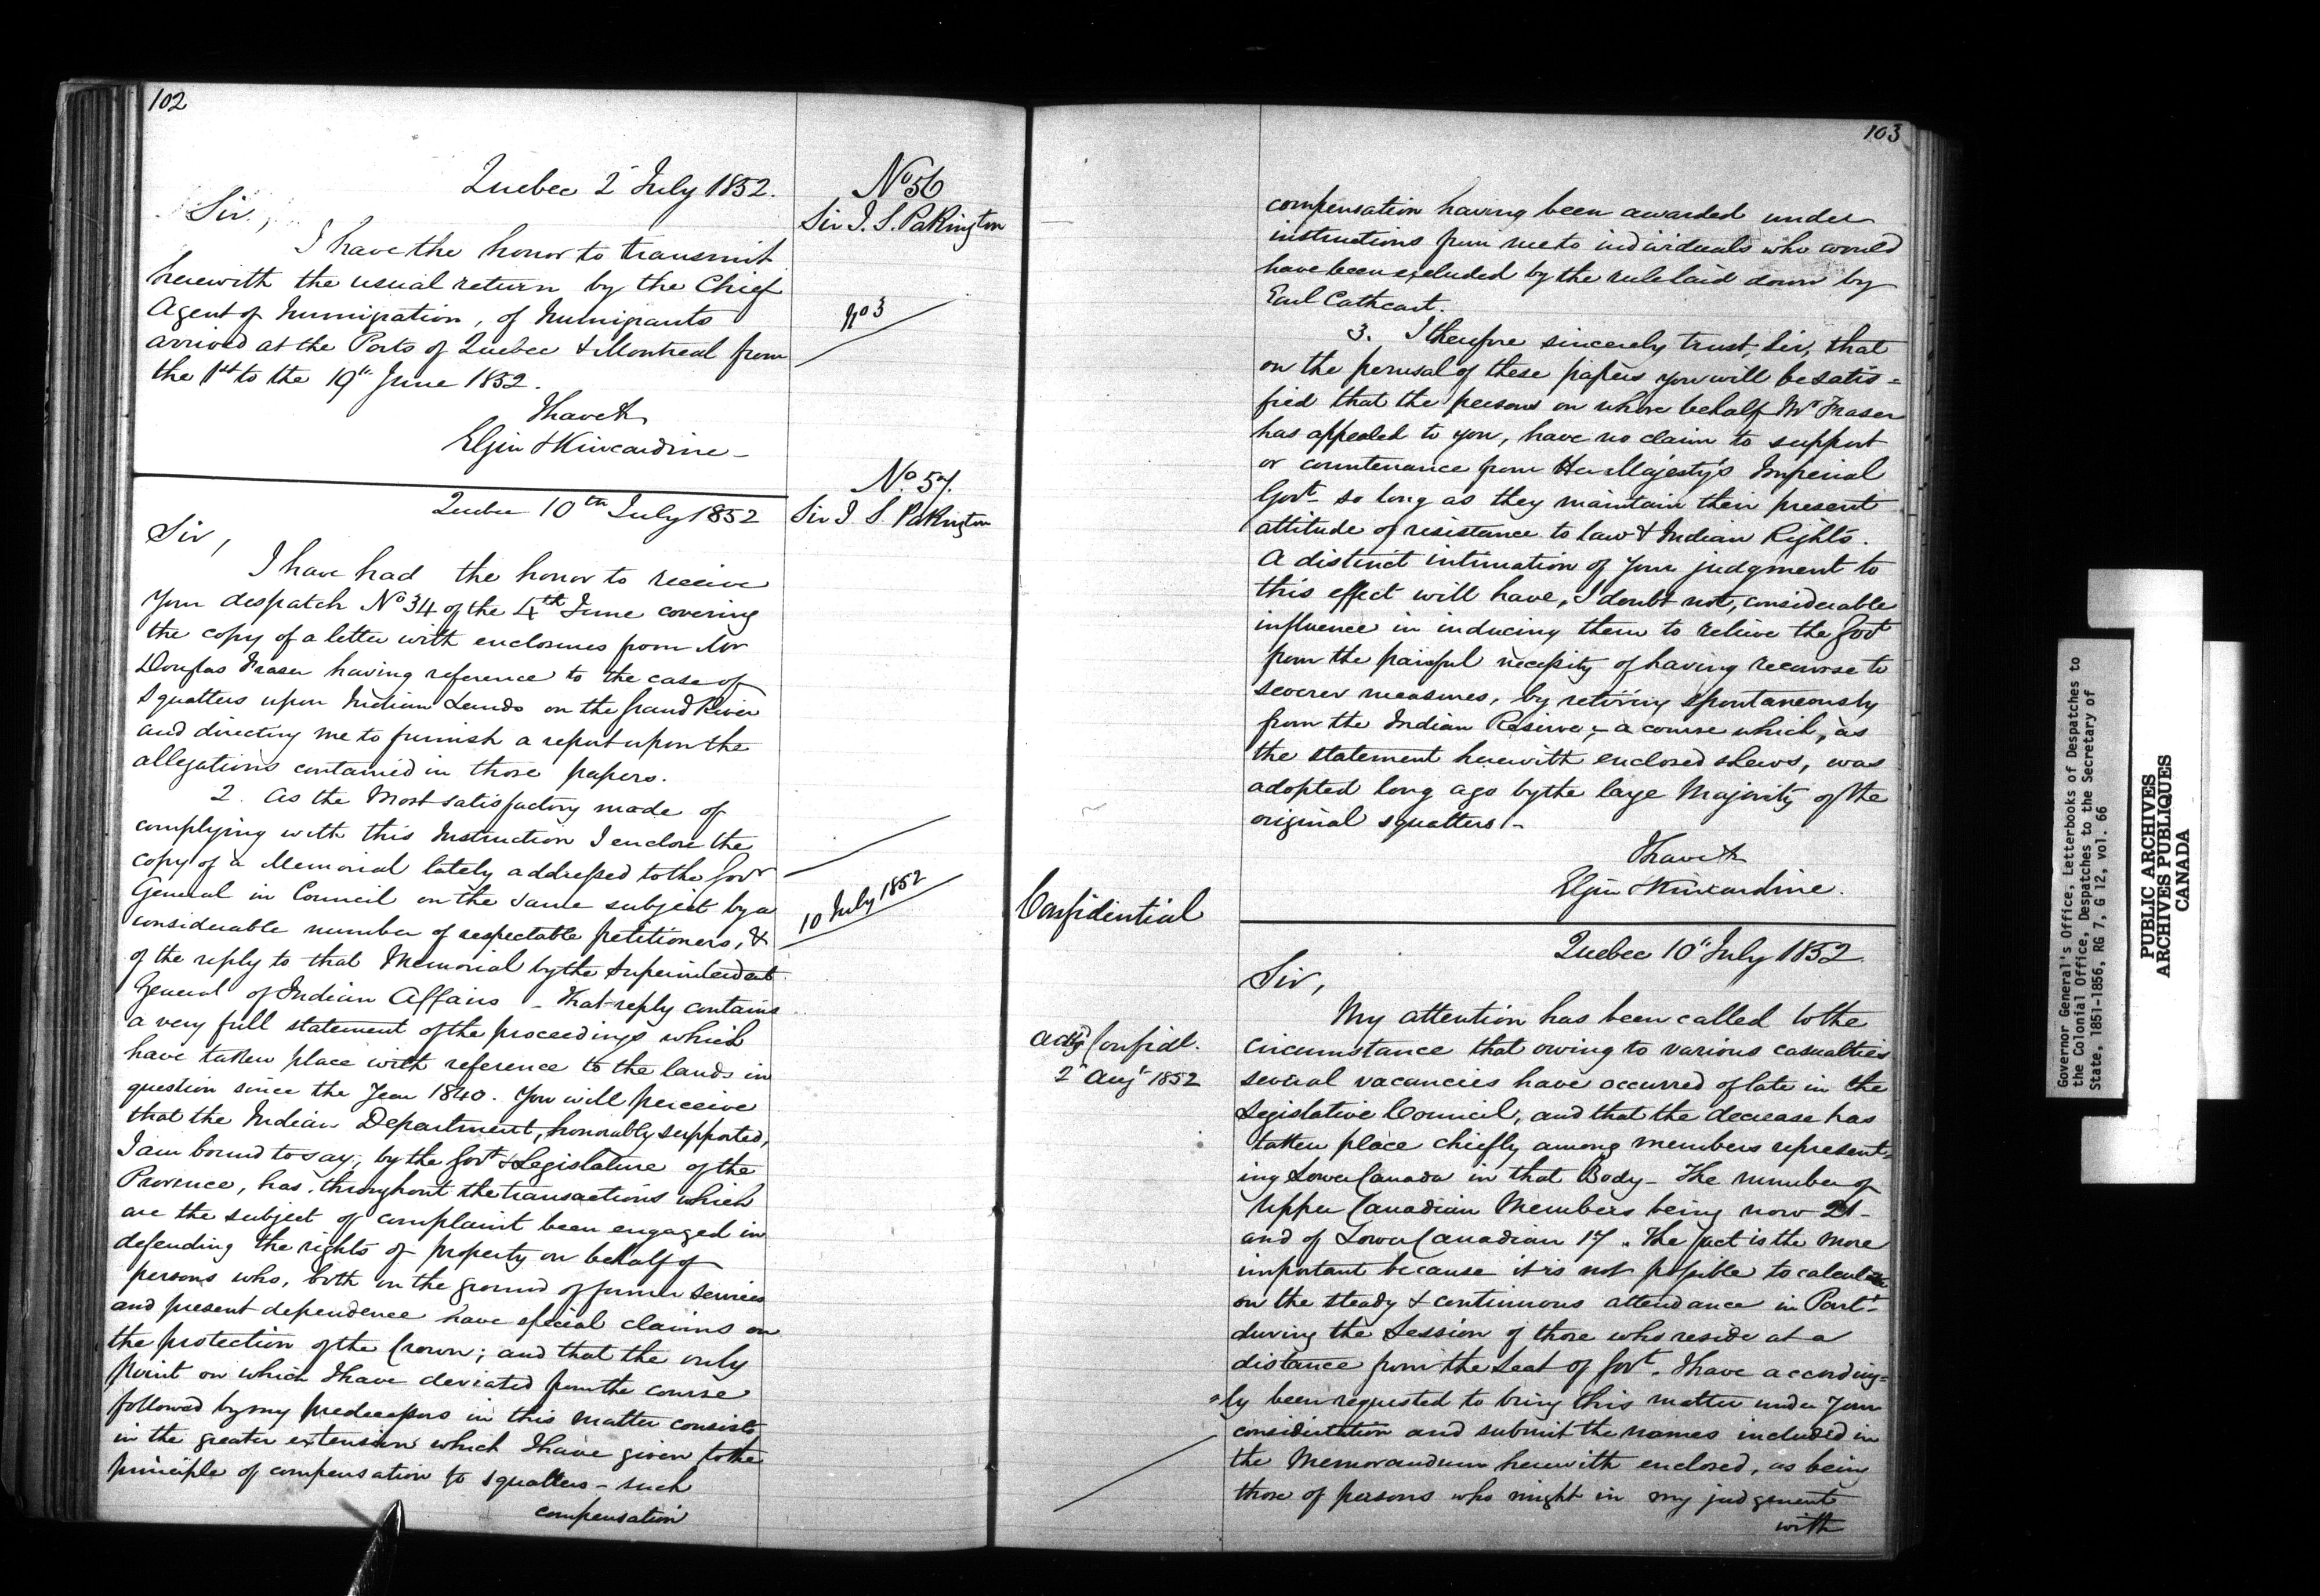 102
Quebec 2 July 1852.
No 56
Sir J. S. Pakington
Sir,
I have the honor to transmit
herewith the usual return by the Chief
Agent of Immigration, of Immigrants
No 3
arrived at the Ports of Quebec & Montreal from
the 1st to the 19th June 1852.
I have &
Elgin & Kincardine -
No. 57.
Quebec 10th July 1852
Sir J. S. Pakington
Sir,
I have had the honor to receive
Your despatch No 34 of the 4th June covering
the copy of a letter with enclosures from Mr
Douglas Fraser having reference to the case of
Squatters upon Indian Lands on the Grand River
and directing me to furnish a report upon the
allegations contained in those papers.
2. As the most satisfactory mode of
complying with this Instruction I enclose the
copy of a Memorial lately addressed to the Govr
General in Council on the same subject by a
10 July 1852
considerable number of respectable petitioners, &
of the reply to that Memorial by the Superintendent
General of Indian Affairs - that reply contains
a very full statement of the proceedings which
have taken place with reference to the lands in
question since the Year 1840. You will perceive
that the Indian Department, honorably supported,
I am bound to say, by the Govt & Legislature of the
Province, has throughout the transactions which
are the subject of complaint been engaged in
defending the rights of property on behalf of
persons who, both on the ground of former services
and present dependence have special claims on
the protection of the Crown; and that the only
point on which I have deviated from the course
followed by my predecessors in this matter consists
in the greater extension which I have given to the
principle of compensation to squatters - such
compensation
103
compensation having been awarded under
instructions from me to individuals who would
have been excluded by the rule laid down by
Earl Cathcart.
3. I therefore sincerely trust, Sir, that
on the perusal of these papers you will be satis=
fied that the persons on whose behalf Mr Fraser
has appealed to you, have no claim to support
or countenance from Her Majesty's Imperial
Govt so long as they maintain their present
attitude of resistance to law & Indian Rights.
A distinct intimation of Your judgment to
this effect will have, I doubt not, considerable
influence in inducing them to relieve the Govt
from the painful necessity of having recourse to
severer measures, by retiring spontaneously
from the Indian Reserve; - a course which, as
the statement herewith enclosed shews, was
adopted long ago by the large Majority of the
original squatters. -
I have &
Elgin & Kincardine.
Confidential
Quebec 10" July 1852
Sir,
My attention has been called to the
Confidl.
2" Augt 1852
circumstance that owing to various casualties
several vacancies have occurred of late in the
Legislative Council, and that the decrease has
taken place chiefly among members represent=
ing Lower Canada in that Body - The number of
Upper Canadian Members being now 21 -
and of Lower Canadian 17. The fact is the more
important because it is not possible to calculate
on the steady & continuous attendance in Parlt
during the Session of those who reside at a
distance from the Seat of Govt. I have according=
=ly been requested to bring this matter under Your
consideration and submit the names included in
the Memorandum herewith enclosed, as being
those of persons who might in my judgement
with
Governor General's Office, Letterbooks of Despatches to
the Colonial Office, Despatches to the Secretary of
State, 1851-1856, RG 7, G 12, vol. 66
PUBLIC ARCHIVES
ARCHIVES PUBLIQUES
CANADA